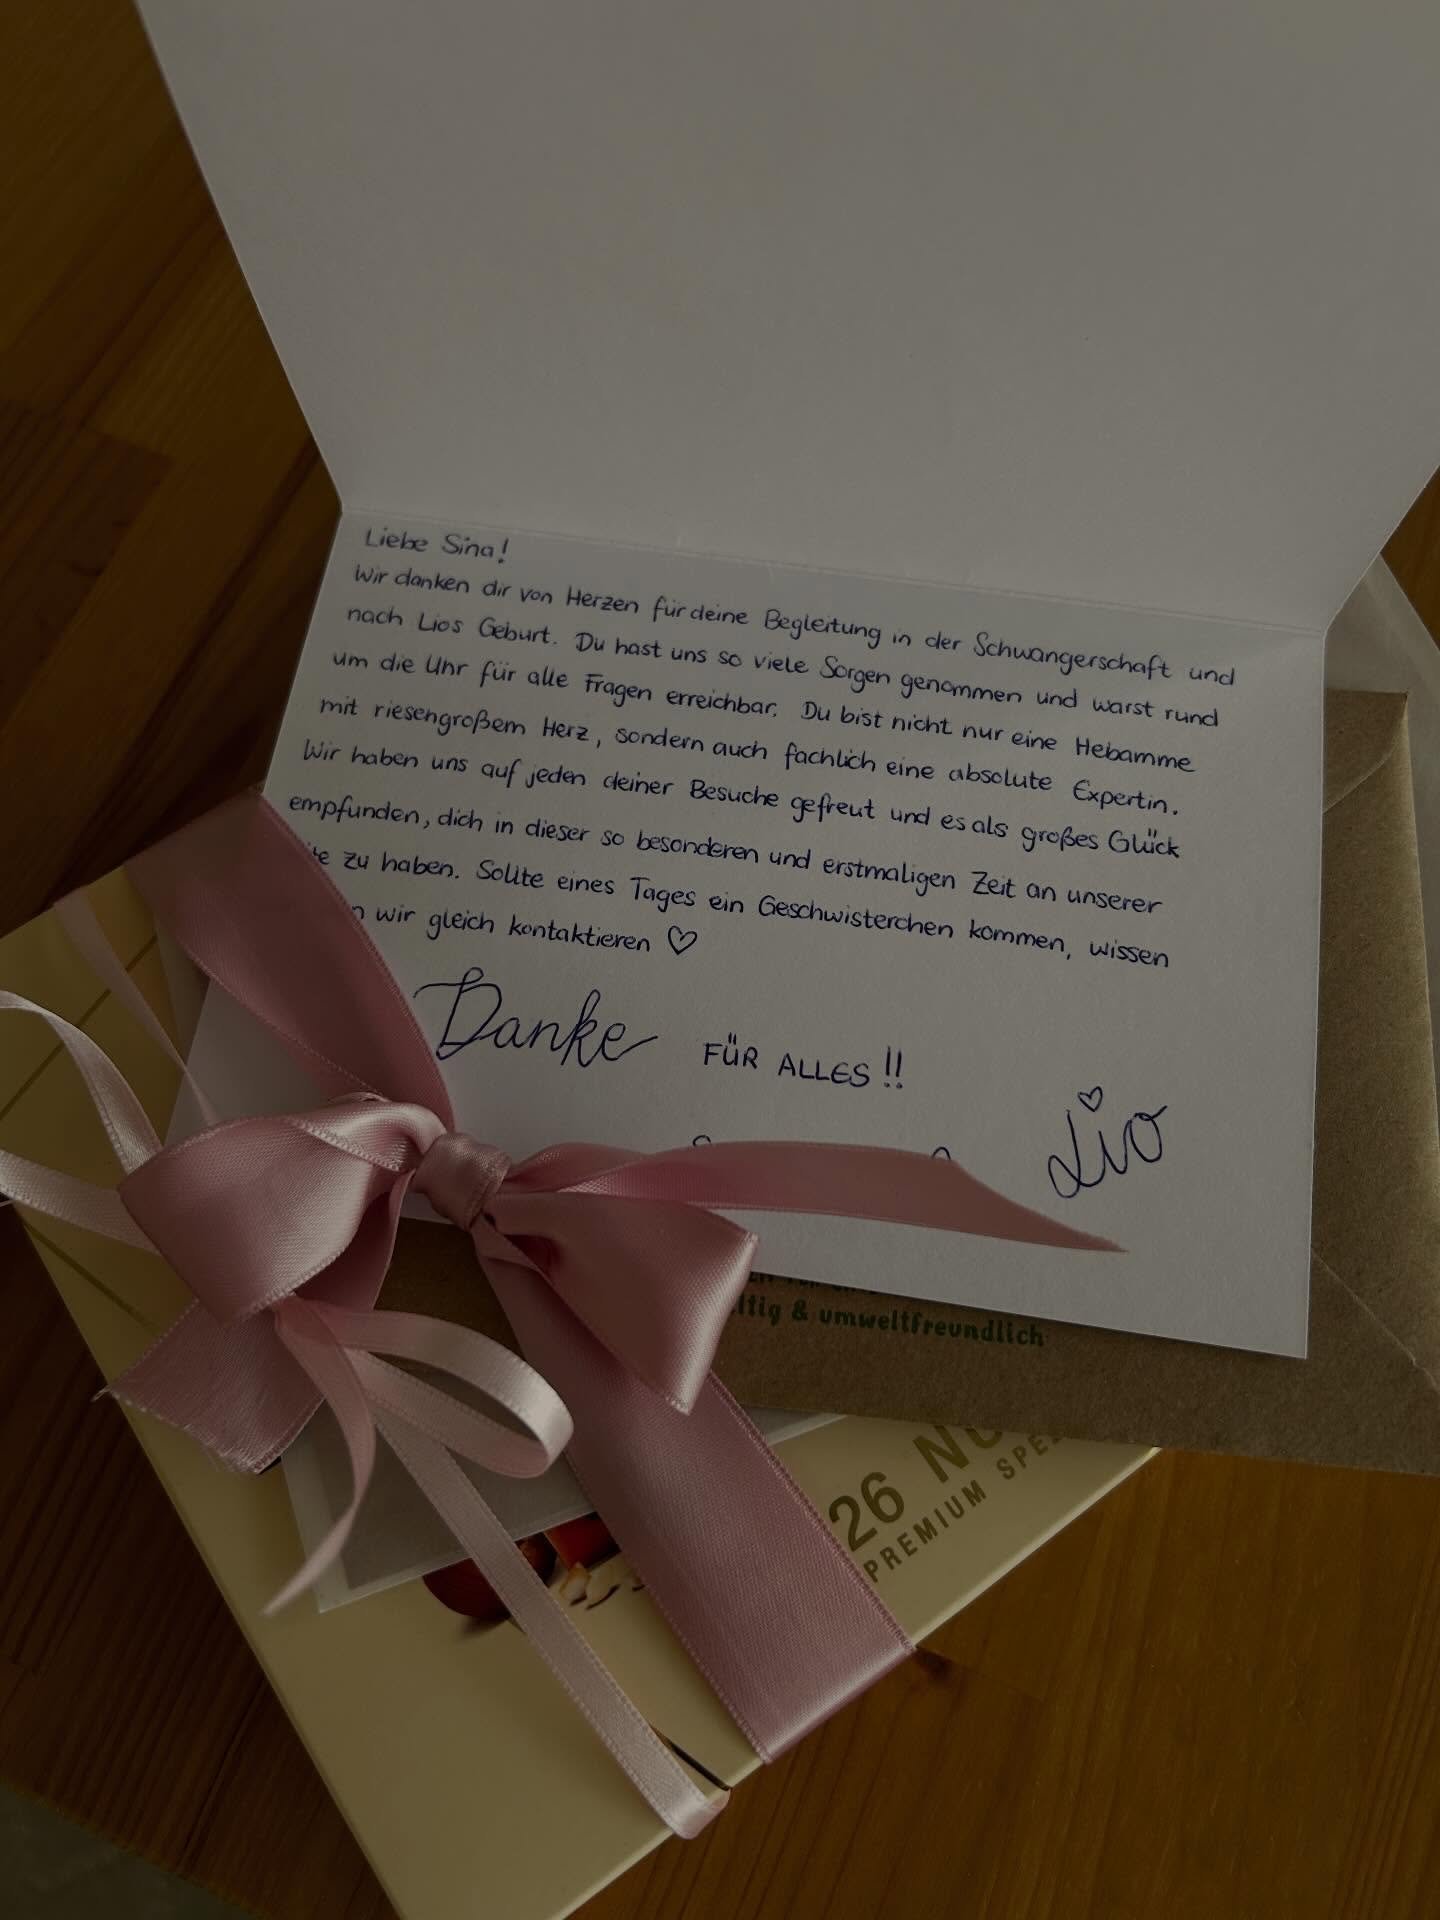 Liebe Sina!
Wir danken dir von Herzen für deine Begleitung in der Schwangerschaft und
nach Lios Geburt. Du hast uns so viele Sorgen genommen und warst rund
um die Uhr für alle Fragen erreichbar. Du bist nicht nur eine Hebamme
mit riesengroßem Herz, sondern auch fachlich eine absolute Expertin.
Wir haben uns auf jeden deiner Besuche gefreut und es als großes Glück
empfunden, dich in dieser so besonderen und erstmaligen Zeit an unserer
zu haben. Sollte eines Tages ein Geschwisterchen kommen, wissen
wir gleich kontaktieren ♡
Danke FÜR ALLES!!
Lio
& umweltfreundlich
26
PREMIUM